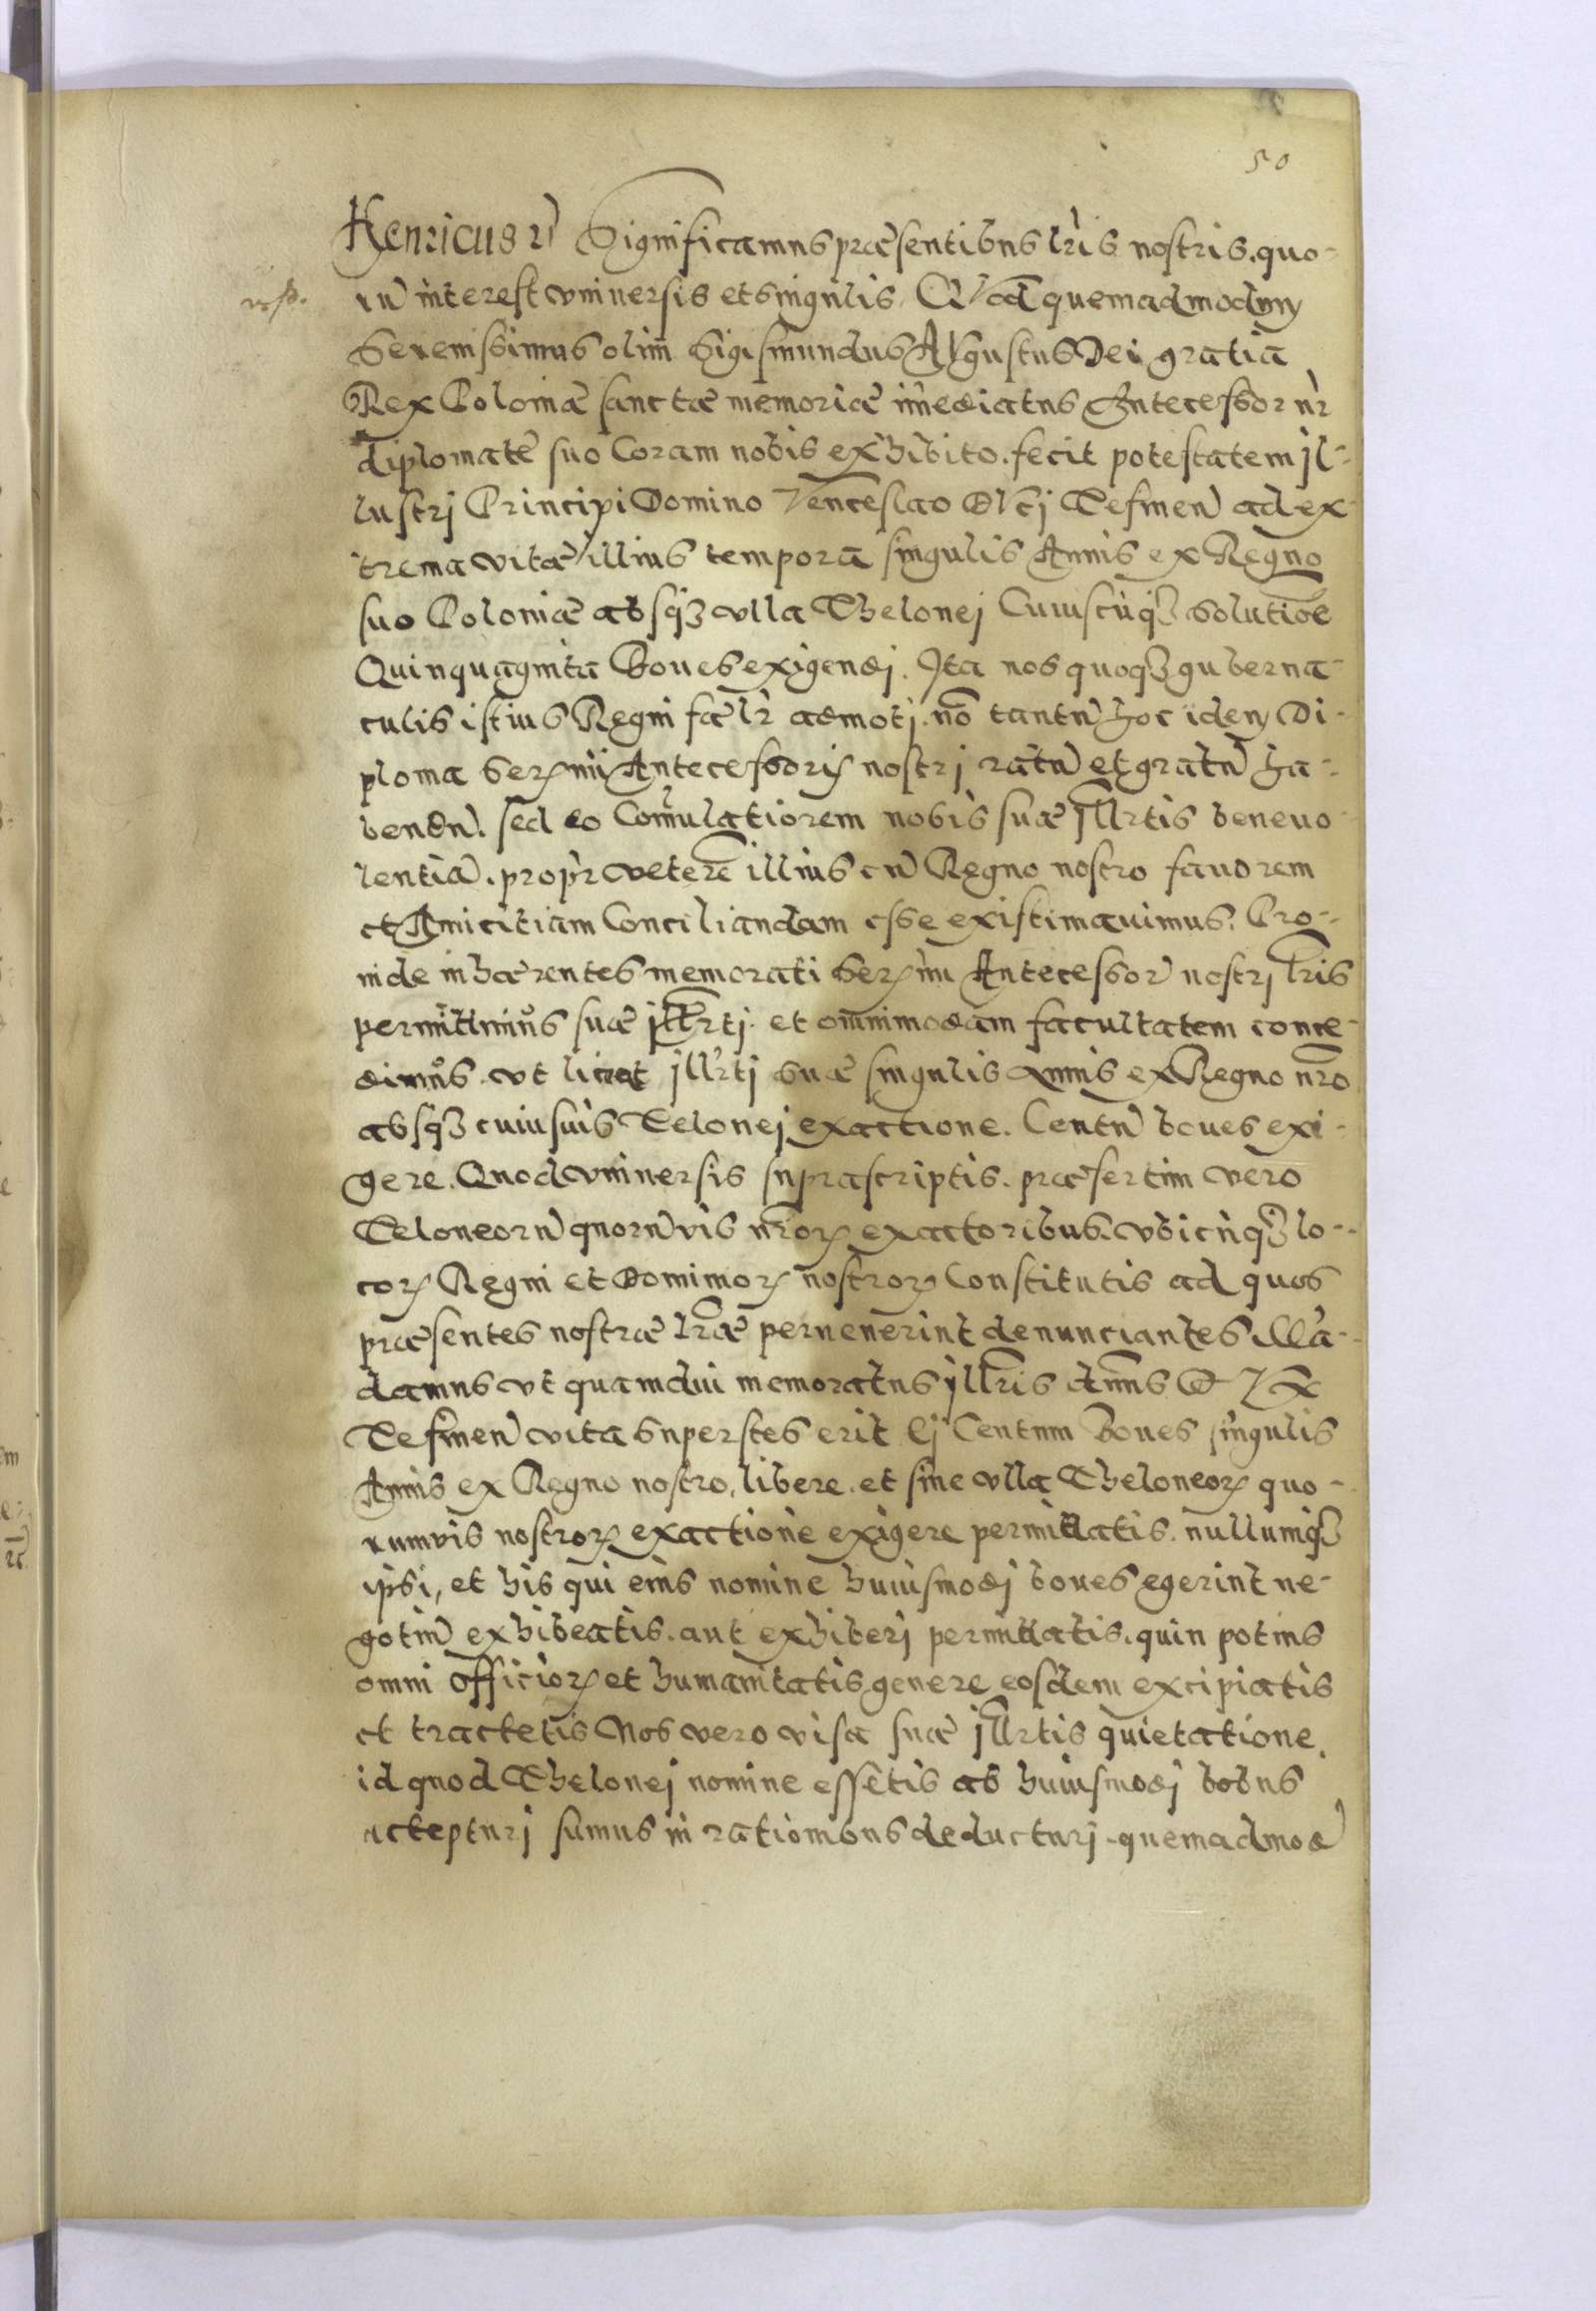 50
Henricus r) Significamus præsentibus lr̃is nostris. quo-
rũ interest vniuersis et singulis. QVod quemadmodum
Serenissimus olim Sigismundus AVgustus Dei gratia
Rex Poloniæ sanctæ memoriæ im̃ediatus Antecessor nr̃
diplomate suo Coram nobis exhibito. fecit potestatem jl-
lustrj Principi Domino Venceslao DVcj Tesinen) ad ex-
trema vitæ illius tempora singulis Annis ex Regno
suo Poloniæ absqȝ vlla Thelonej Cuiuscũqȝ solutiõe
Quinquaginta Boues exigendj. Ita nos quoqȝ guberna-
culis istius Regni fælr̃ admotj. nõ tantũ hoc idem Di-
ploma Serꝫmi Antecessoris nostrj ratũ et gratũ ha-
bendũ. sed eo Com̃ulatiorem nobis suæ jllr̃tis beneuo-
lentiã. propr̃ veterẽ illius cũ Regno nostro fauorem
et Amicitiam Conciliandam esse existimauimus. Pro-
inde inhærentes memorati Serꝫmi Antecessor) nostrj lr̃is
permittimus suæ jllr̃tj. et omnimodam facultatem conce-
dimus. vt liceat jllr̃tj suæ singulis Annis ex Regno nr̃o
absqȝ cuiusuis Telonej exactione. Centũ boues exi-
gere. Quod vniuersis suprascriptis. præsertim vero
Teloneorũ quorũvis nr̃orꝫ exactoribus. vbicũqȝ lo-
corꝫ Regni et Dominiorꝫ nostrorꝫ Constitutis ad quos
præsentes nostræ lr̃æ peruenerint denunciantes illa-
damus vt quamdiu memoratus jllr̃is dñns D
Tesinen) vita superstes erit Ej Centum Boues singulis
Annis ex Regno nostro, libere. et sine vlla Theloneorꝫ quo-
rumvis nostrorꝫ exactione exigere permittatis. nullumqȝ
ipsi, et his qui eius nomine huiusmodj boues egerint ne-
gotiũ exhibeatis. aut exhiberj permittatis. quin potius
omni officiorꝫ et humanitatis genere eosdem excipiatis
et tractetis Nos vero visa suæ jllr̃tis quietatione.
id quod Thelonej nomine essetis ab huiusmodj bobus
acceptur̃j sumus in rationibus deducturj. quemadmod)